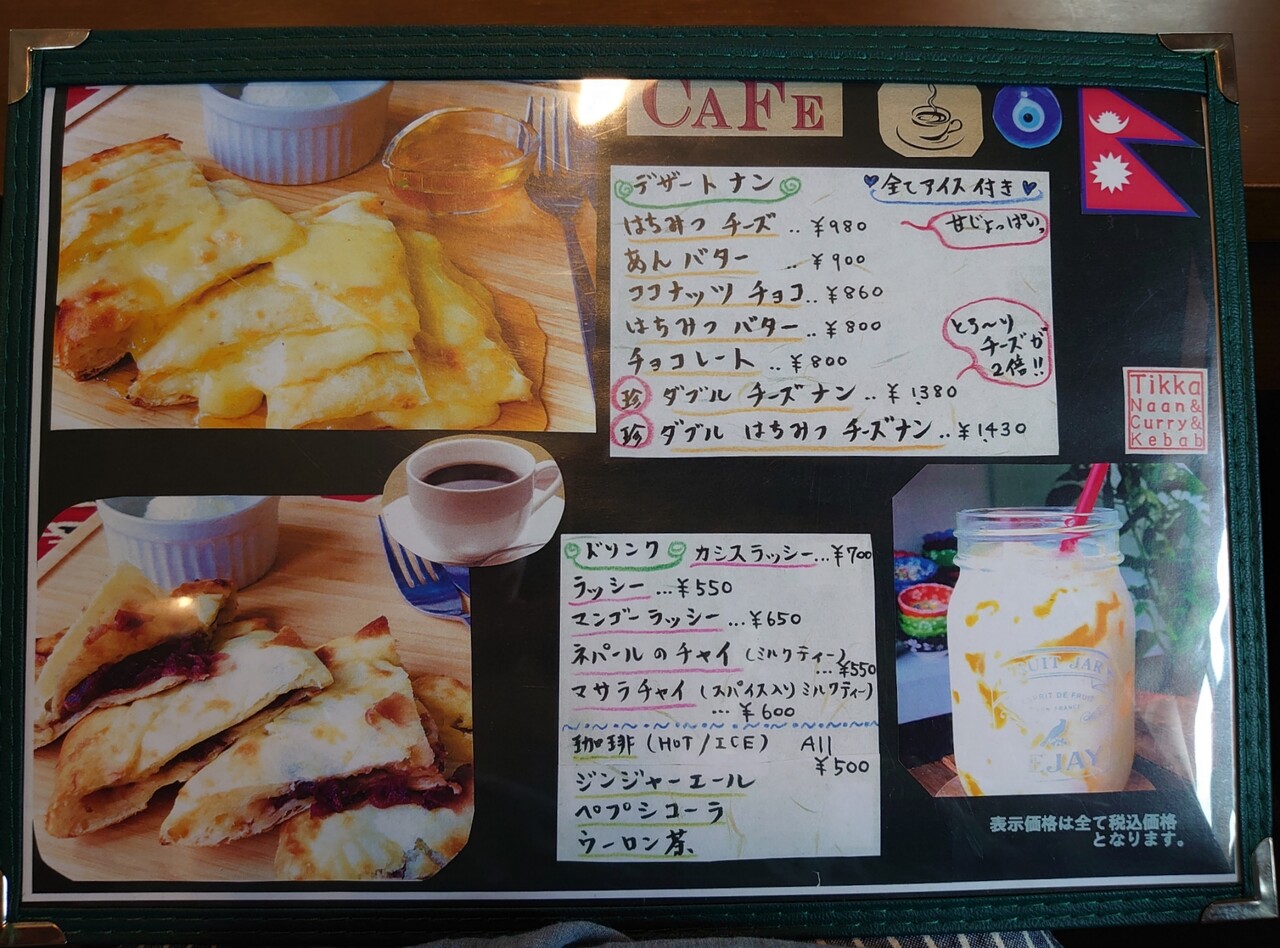 CAFE
デザートナン 全てアイス付き
はちみつ チーズ‥¥980
甘じょっぱいっ
あん バター ‥¥900
ココナッツ チョコ‥¥860
はちみつ バター‥¥800
とろ〜り
チーズが
2倍!!
チョコレート‥¥800
珍 ダブル チーズナン‥¥1,380
珍 ダブル はちみつ チーズナン‥¥1,430
Tikka
Naan&
Curry&
Kebab
ドリンク カシスラッシー…¥700
ラッシー…¥550
マンゴーラッシー…¥650
ネパールのチャイ(ミルクティー)
…¥550
マサラチャイ(スパイス入りミルクティー)
…¥600
珈琲(HOT/ICE) All
¥500
ジンジャーエール
ペプシコーラ
ウーロン茶
FRUIT JAR
EJAY
表示価格は全て税込価格
となります。